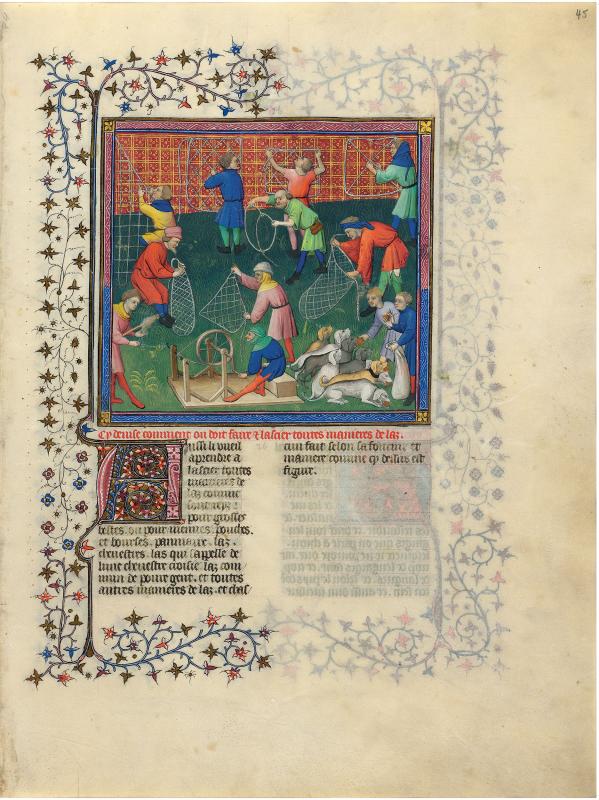 45
Cy deuise comment on doit faire & lascier toutes manieres de laz.
Aussi li vueil
aprendre a
lascier toutes
manieres de
laz comme
pour grosses
bestes. ou pour menues. pouches.
et bourses. panniaux. laz.
cheuestres. las qui sappelle de
lune cheuestre croisie. laz com
mun de poure gent. et toutes
autres manieres de laz. et chas
cun fait selon sa fourme et
maniere comme cy dessus est
figure.